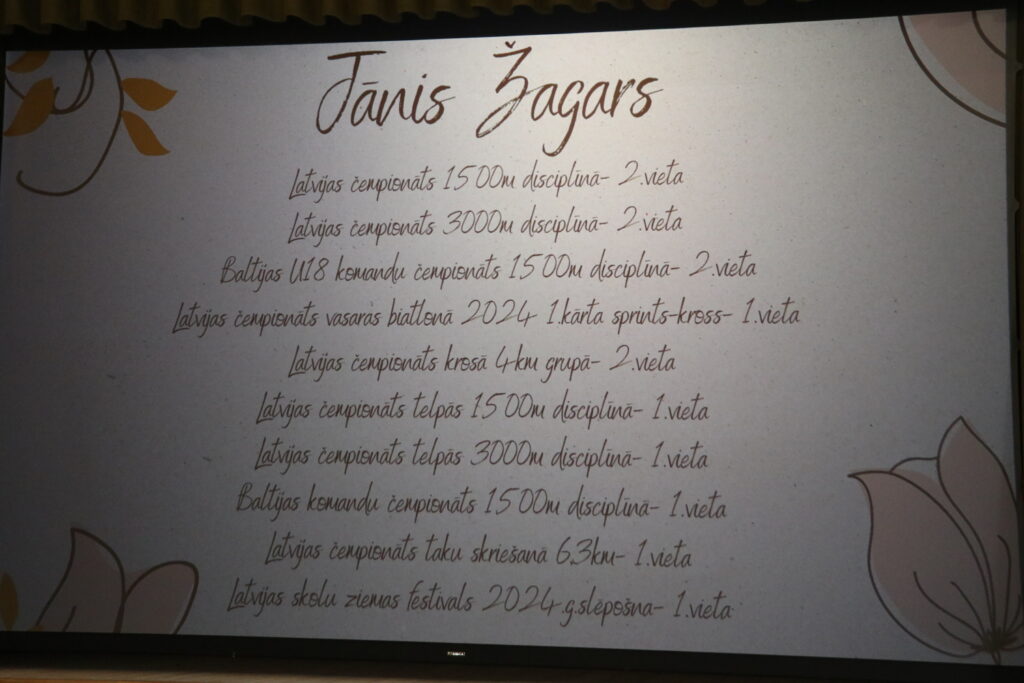 Jānis Žagars
Latvijas čempionāts 1500m disciplīnā- 2.vieta
Latvijas čempionāts 3000m disciplīnā- 2.vieta
Baltijas U18 komandu čempionāts 1500m disciplīnā- 2.vieta
Latvijas čempionāts vasaras biatlonā 2024 1.kārta sprints-kross- 1.vieta
Latvijas čempionāts krosā 4km grupā- 2.vieta
Latvijas čempionāts telpās 1500m disciplīnā- 1.vieta
Latvijas čempionāts telpās 3000m disciplīnā- 1.vieta
Baltijas komandu čempionāts 1500m disciplīnā- 1.vieta
Latvijas čempionāts taku skriešanā 6.3km- 1.vieta
Latvijas skolu ziemas festivals 2024.g.slēpošna- 1.vieta